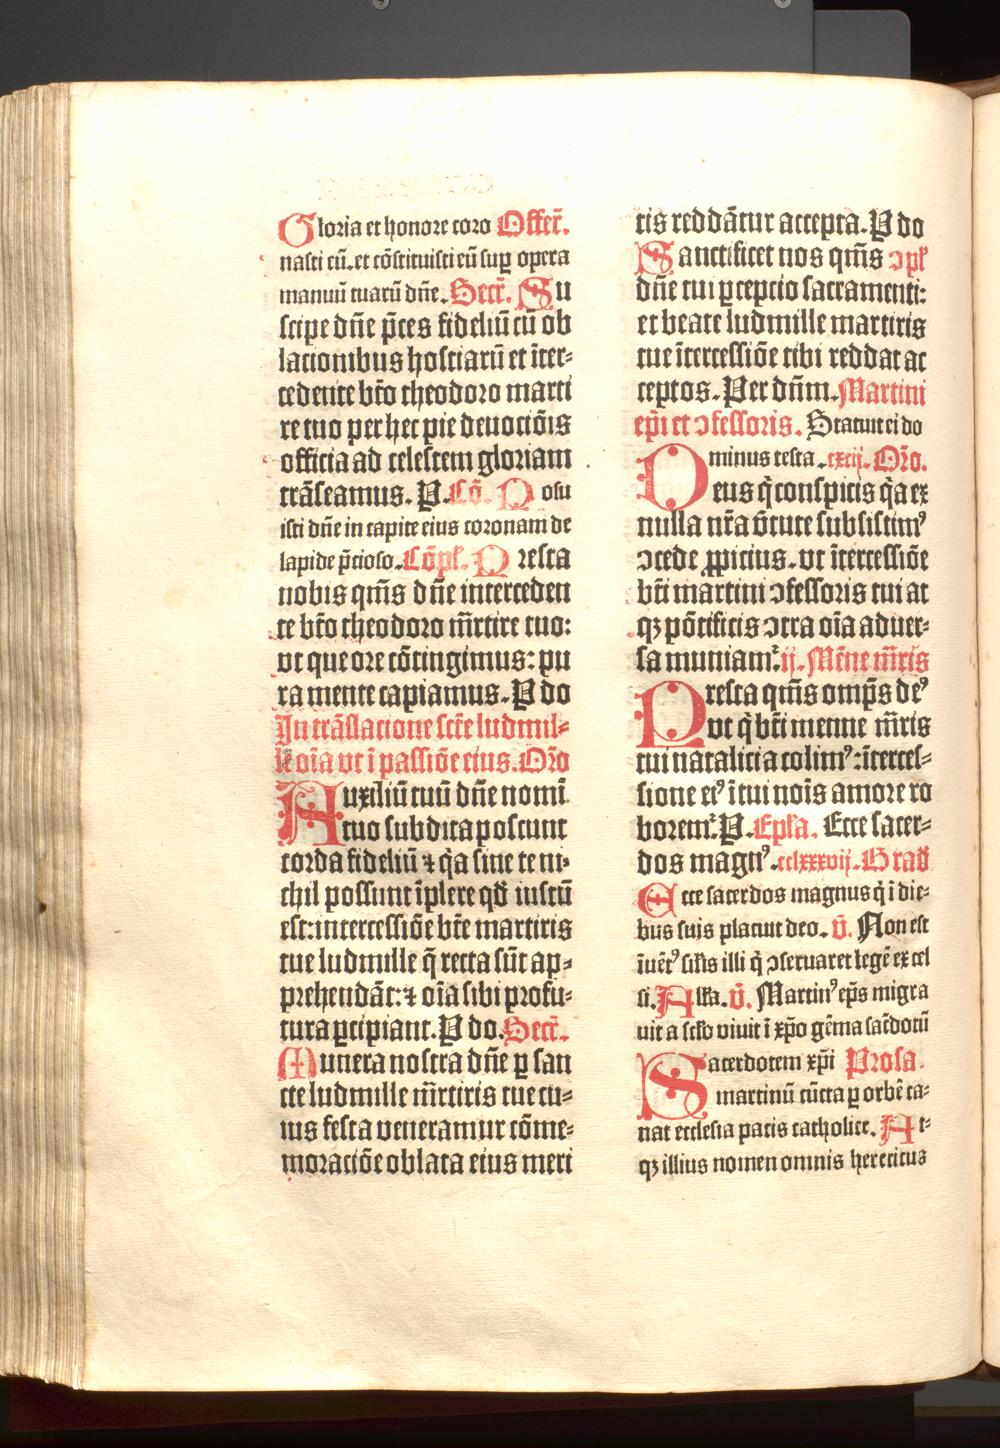 Gloria et honore coro Offer̄.
nasti cū.et cōstituisti eū sup̱ opera
manuū tuarū dn̄e. Secr̄. Su
scipe dn̄e p̄ces fideliū cū ob
lacionibus hostiarū et īter⸗
cedente bt̄o theodoro marti
re tuo per hec pie deuociōis
officia ad celestem gloriam
trāseamus. P. Cō. Posu
isti dn̄e in capite eius coronam de
lapide p̄cioso. Cōpl̄. Presta
nobis qm̄s dn̄e interceden
te bt̄o theodoro m̄rtire tuo:
vt que ore cōtingimus: pu
ra mente capiamus. P do
In trāslacione sct̄e ludmil⸗
le oīa vt ī passiōe eius. Or̄o
Auxiliū tuū dn̄e nomī
tuo subdita poscunt
corda fideliū ⁊ q̄a sine te ni⸗
chil possunt īplere qd̄ iustū
est: intercessiōe bt̄e martiris
tue ludmille q̄ recta sūt ap⸗
prehendāt: ⁊ oīa sibi profu⸗
tura p̱cipiant. P do. Secr̄.
Munera nostra dn̄e p̱ san
cte ludmille m̄rtiris tue cu⸗
ius festa veneramur cōme⸗
moraciōe oblata eius meri
tis reddātur accepta. P do
Sanctificet nos qm̄s ɔpl̄
dn̄e tui p̱cepcio sacramenti:
et beate ludmille martiris
tue ītercessiōe tibi reddat ac
ceptos. Per dn̄m. Martini
ep̄i et ɔfessoris. Statuit ei do
minus testa. cxcij. Or̄o.
Deus q̄ conspicis q̄a ex
nulla nr̄a v̄tute subsistimꝰ
ɔcede ꝓpicius. vt ītercessiōe
bt̄i martini ɔfessoris tui at
qꝫ pōtificis ɔtra oīa aduer⸗
sa muniam̄. ij. Mēne m̄ris
Presta qm̄s omp̄s deꝰ
vt q̄ bt̄i menne m̄ris
tui natalicia colimꝰ: īterces⸗
sione eiꝰ ī tui noīs amore ro
borem̄. P. Epl̄a. Ecce sacer⸗
dos magnꝰ. cclxxxvij. Grad̄
Ecce sacerdos magnus q̄ ī die⸗
bus suis placuit deo. v̄. Non est
īuētꝰ sil̄is illi q̄ ɔseruaret legē excel
si. All̄a. v̄. Martinꝰ ep̄s migra
uit a sc̄lo viuit ī xp̄o gēma sac̄dotū
Sacerdotem xp̄i Prosa.
martinū cūcta p̱ orbē ca⸗
nat ecclesia pacis catholice. At⸗
qꝫ illius nomen omnis hereticus